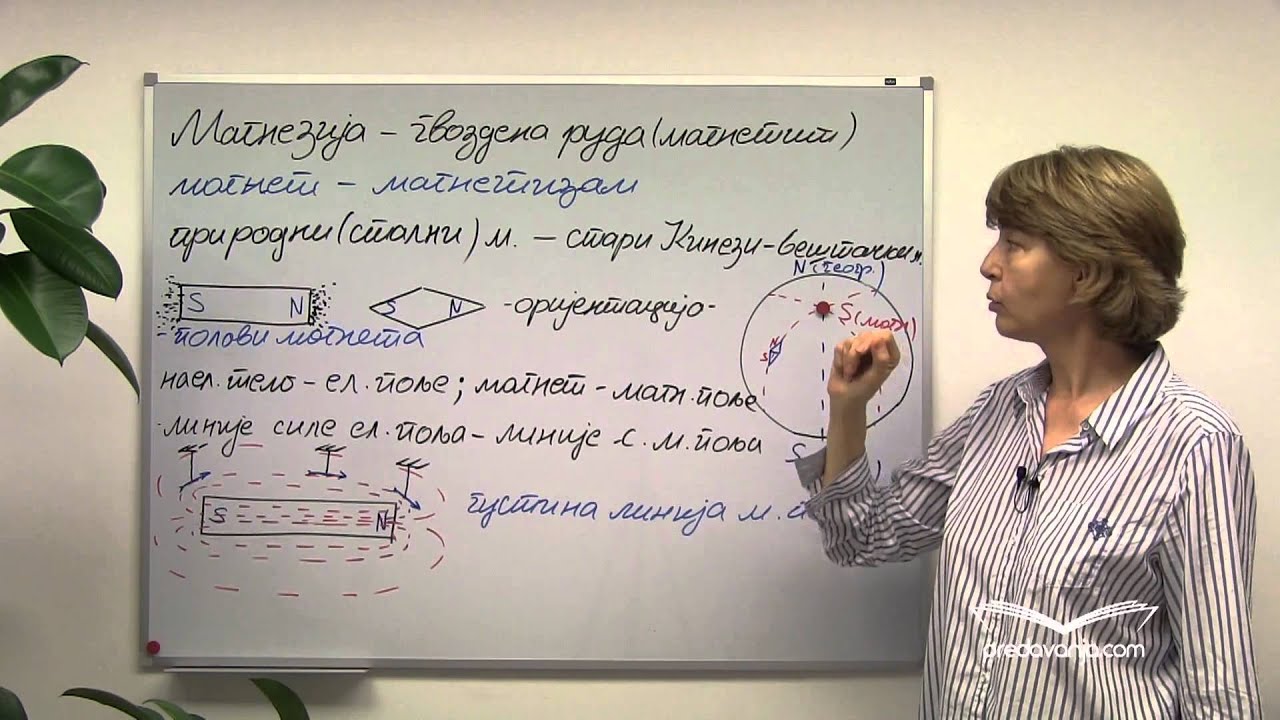 Магнезија – гвоздена руда (магнетит)
магнет – магнетизам
природни (стални) м. – стари Кинези – вештачки м.
N (геогр.)
S N S N - оријентацијо -
S (магн)
N
S
- полови магнета
наел. тело – ел. поље ; магнет – магн. поље
- линије силе ел. поља – линије с. м. поља
S
S N
густина линија м.
predavanja.com